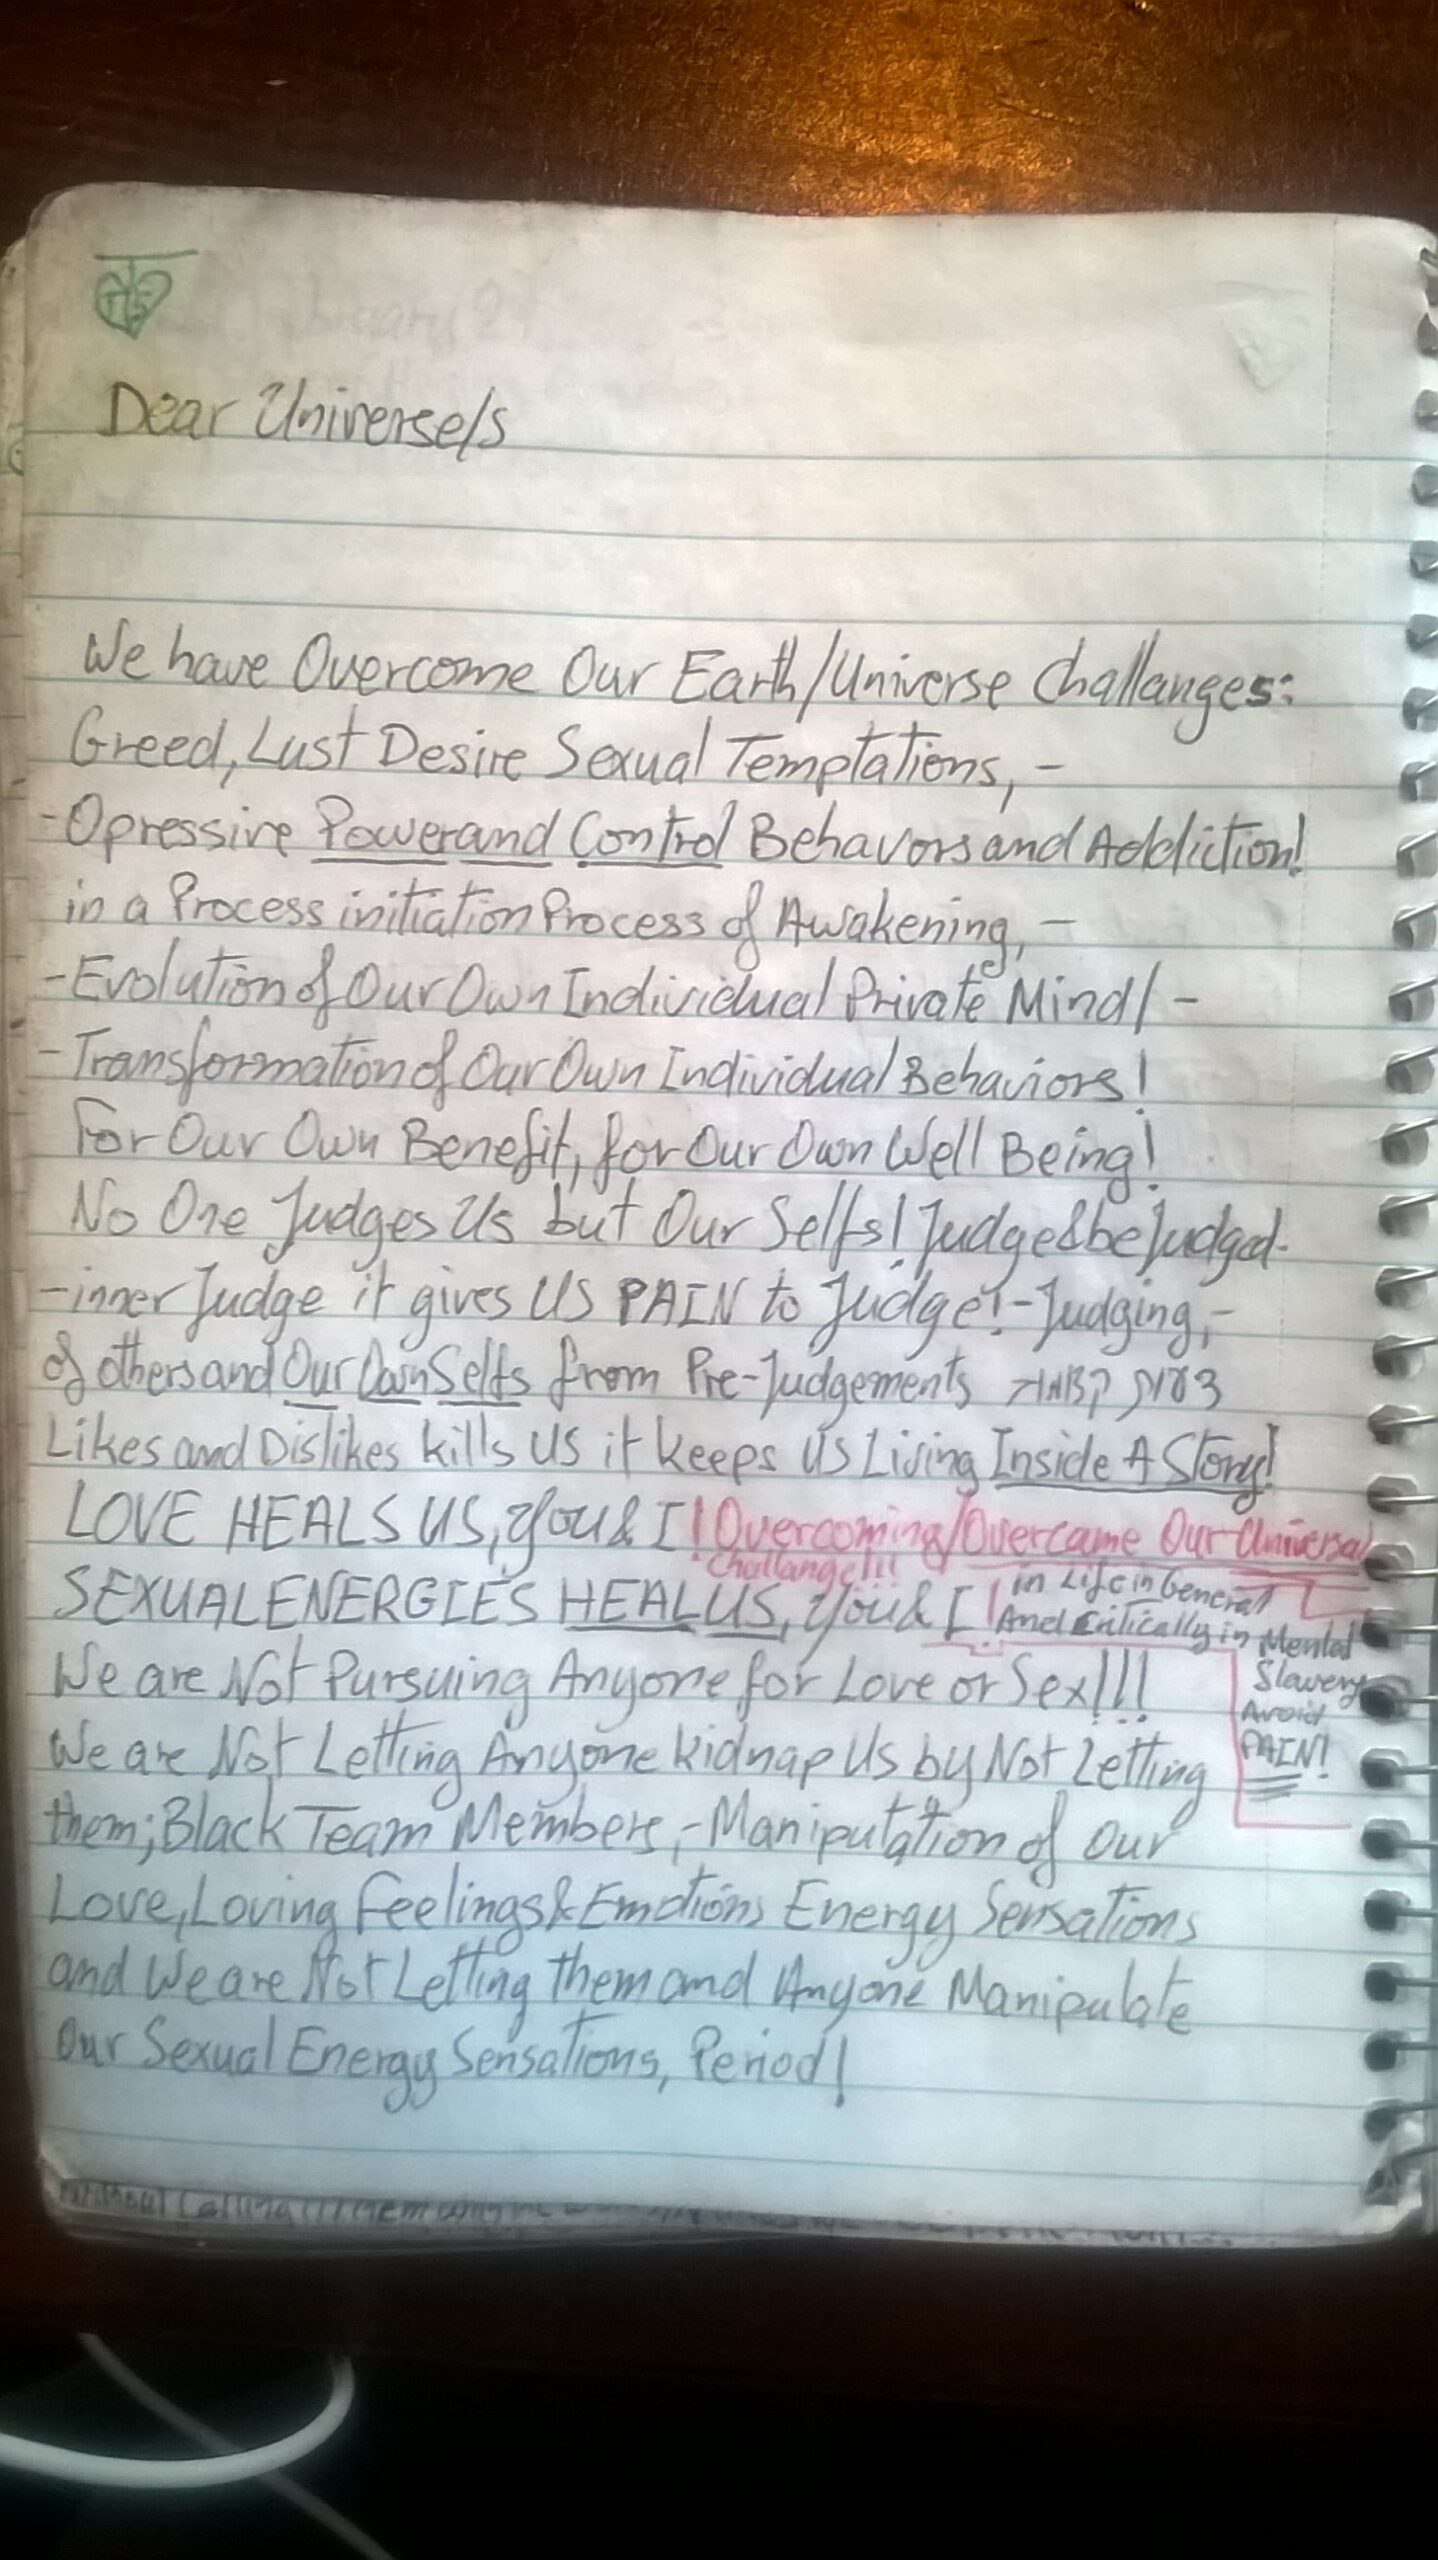 Dear Universe/s
We have Overcome Our Earth/Universe Challanges:
Greed, Lust Desire Sexual Temptations, -
-Opressive Powerand Control Behavors and Addiction!
in a Process initiation Process of Awakening, -
-Evolution of Our Own Individual Private Mind/ -
-Transformation of Our Own Individual Behaviors!
For Our Own Benefit, for Our Own Well Being!
No One Judges Us but Our Selfs! Judge&be Judged-
-inner Judge it gives Us PAIN to Judge!-Judging,-
of others and Our Own Selfs from Pre-Judgements
Likes and Dislikes kills Us it keeps Us Living Inside A Story!
LOVE HEALS US, You & I! Overcoming/Overcame Our Universal
Challange!!!
in Life in General
SEXUAL ENERGIES HEAL US, You & I!
And Critically in Mental
Slavery
Avoid
PAIN!
We are Not Pursuing Anyone for Love or Sex!!!
We are Not Letting Anyone kidnap Us by Not Letting
them; Black Team Members,-Manipulation of Our
Love, Loving Feelings & Emotions Energy Sensations
and We are Not Letting them and Anyone Manipulate
Our Sexual Energy Sensations, Period!